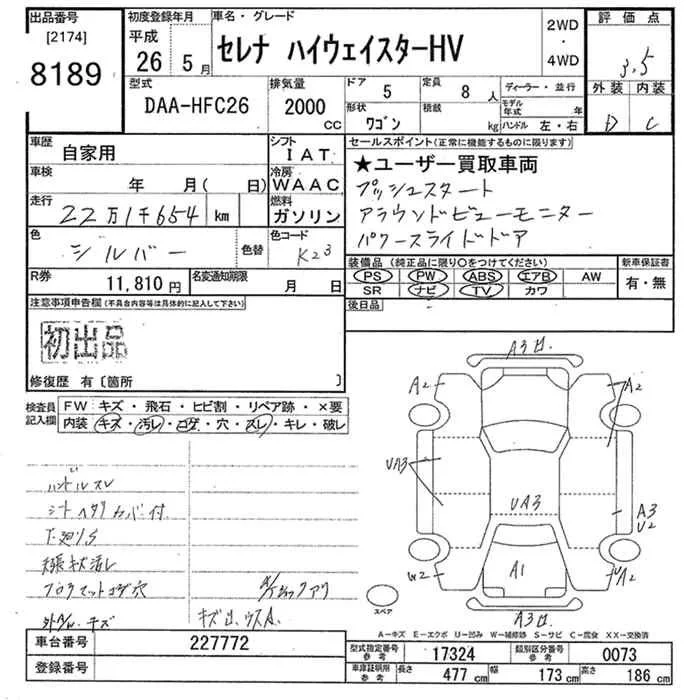 出品番号
[2174]
8189
初度登録年月
平成
26 5月
車名・グレード
セレナ ハイウェイスターHV
2WD
・
4WD
評価点
3.5
外装 内装
D C
型式
DAA-HFC26
排気量
2000
CC
ドア
5
定員
8人
形状
ワゴン
積載
kg
ディーラー・並行
モデル年式 年
ハンドル 左・右
車歴
自家用
シフト
IAT
車検
年 月( 日)
冷房
WAAC
走行
22万1千654 km
燃料
ガソリン
色
シルバー
色替
色コード
K23
R券
11,810円
名変通知期限
月 日
セールスポイント(正常に機能するものに限ります)
★ユーザー買取車両
プッシュスタート
アラウンドビューモニター
パワースライドドア
装備品(純正品に限り○をつけてください)
PS PW ABS エアB AW
SR ナビ TV カワ
新車保証書
有・無
後日品
注意事項申告欄(不具合内容等は具体的に記入して下さい)
初出品
修復歴 有〔箇所 〕
検査員記入欄
FW キズ・飛石・ヒビ割・リペア跡・×要
内装 キズ・汚レ・コゲ・穴・スレ・キレ・破レ
ハンドルスレ
シートヘタリカバー付
下廻りS
フロアマットコゲ穴
キズ
キズ凹、ウスA
A3凹
A2
A2
UA3
UA3
A3
U2
A1
W2
UA2
A3凹
スペア
A－キズ E－エクボ U－凹み W－補修跡 S－サビ C－腐食 XX－交換済
車台番号
227772
登録番号
型式指定番号
参考
17324
類別区分番号
参考
0073
車庫証明用
参考
長さ 477cm
幅 173cm
高さ 186cm